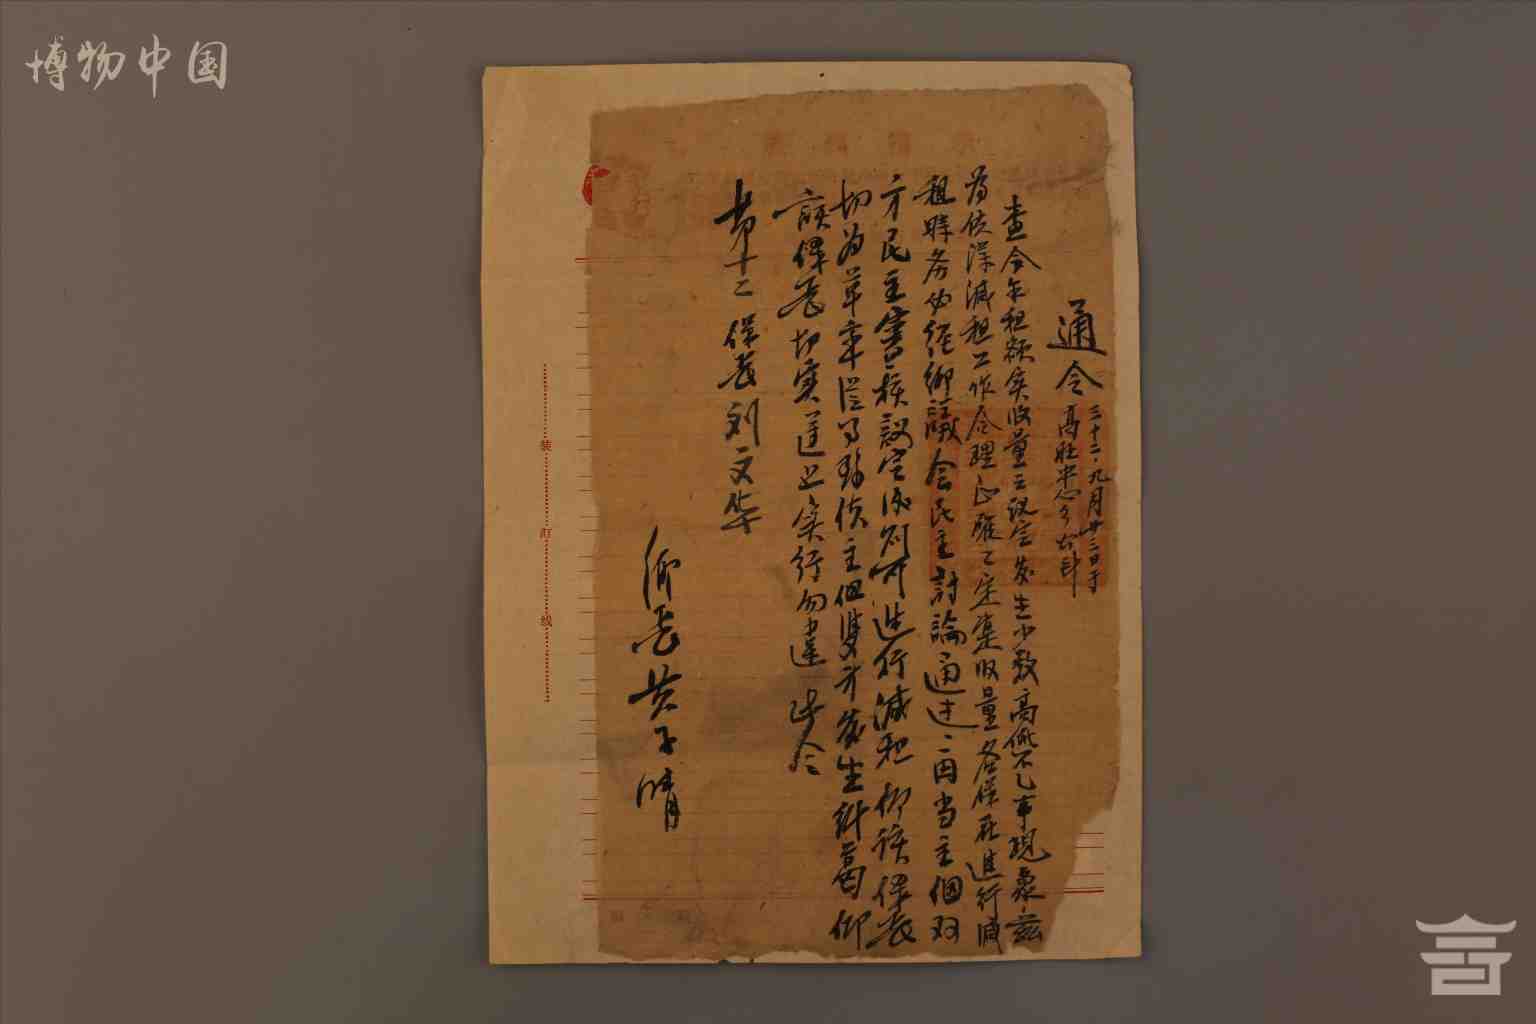 博物中国
通令
三十二、九月廿三日于
高旺中心乡公所
查今年租额实收量之议定发生少数高低不一事现象兹
为使深减租工作合理正确之定集收量各保在进行减
租时务必经乡议会民主讨论通过一面当主佃双
方民主审核议定后别才进行减租仰该保长
切勿草率从事致使主佃双方发生纠葛仰
该保长切实遵照实行勿违此令
第十二保长刘文华
乡长黄子晴
装
订
线